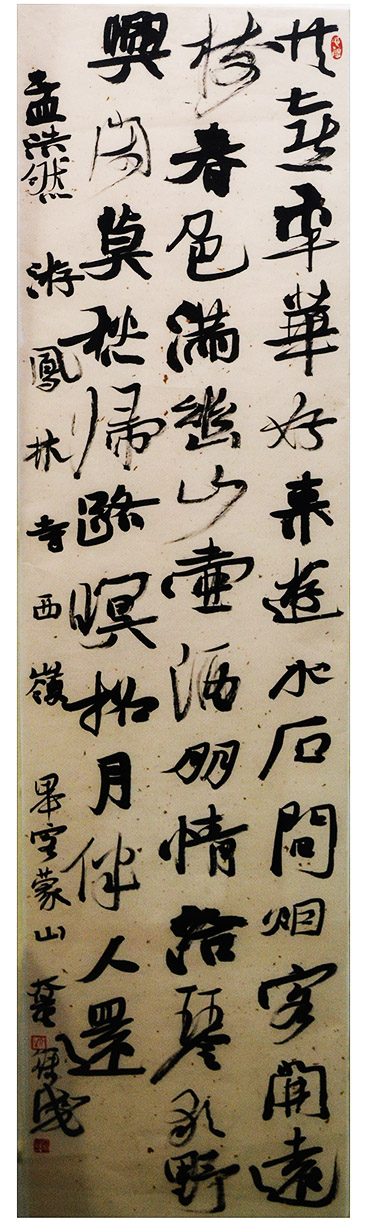 共喜年華好來遊水石間烟容開遠
樹春色滿幽山壺酒朋情洽琴歌野
興閑莫愁歸路暝招月伴人還
孟浩然游鳳林寺西嶺 蒙山